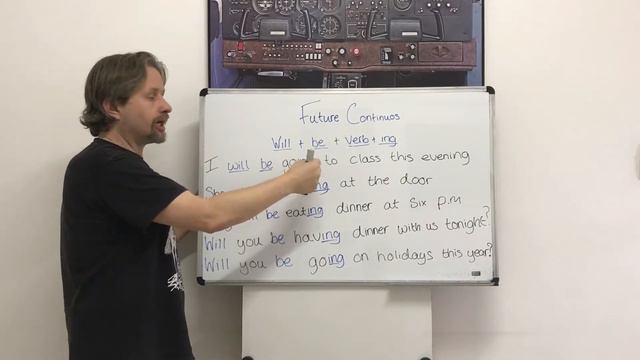 Future Continuos
Will + be + Verb + ing
I will be going to class this evening
ing at the door
be eating dinner at Six p.m
Will you be having dinner with us tonight?
Will you be going on holidays this year?